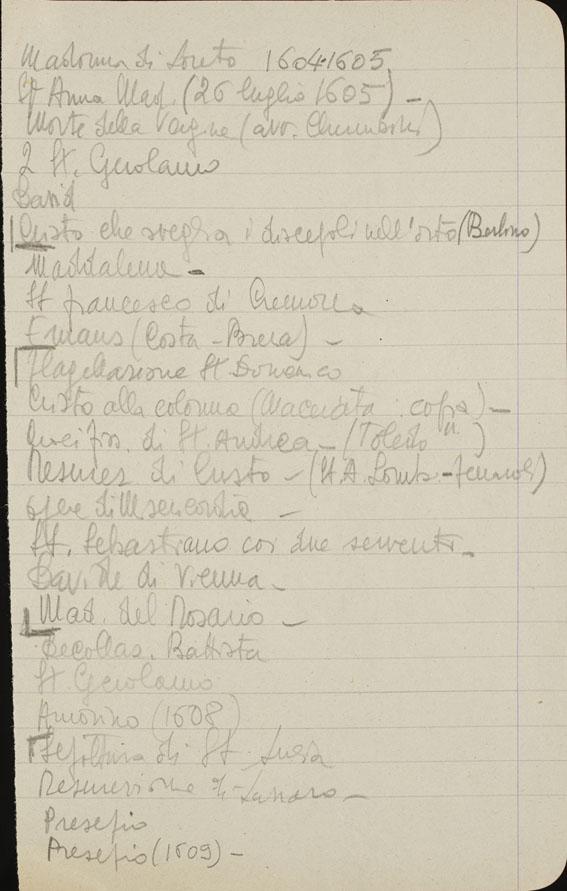 Madonna di Loreto 1604-1605
St Anna Mad. (26 luglio 1605) -
Morte della Vergine (avv. Cherubini)
2 St. Gerolamo
David
Cristo che sveglia i discepoli nell'orto (Berlino)
Maddalena -
St francesco di Cremona
Emaus (Costa - Brera) -
Flagellazione St Domenico
Cristo alla colonna (Macerata: copia) -
Crocifiss. di St. Andrea - (Toledo)
Resurrez di Cristo - (St. A. Lomb. - )
Opere di Misericordia -
St. Sebastiano coi due serventi -
Davide di Vienna -
Mad. del Rosario -
Decollaz. Battista
St Gerolamo
Amorino (1608)
Sepoltura di St. Lucia
Resurrezione di Lazzaro -
Presepio
Presepio (1609) -